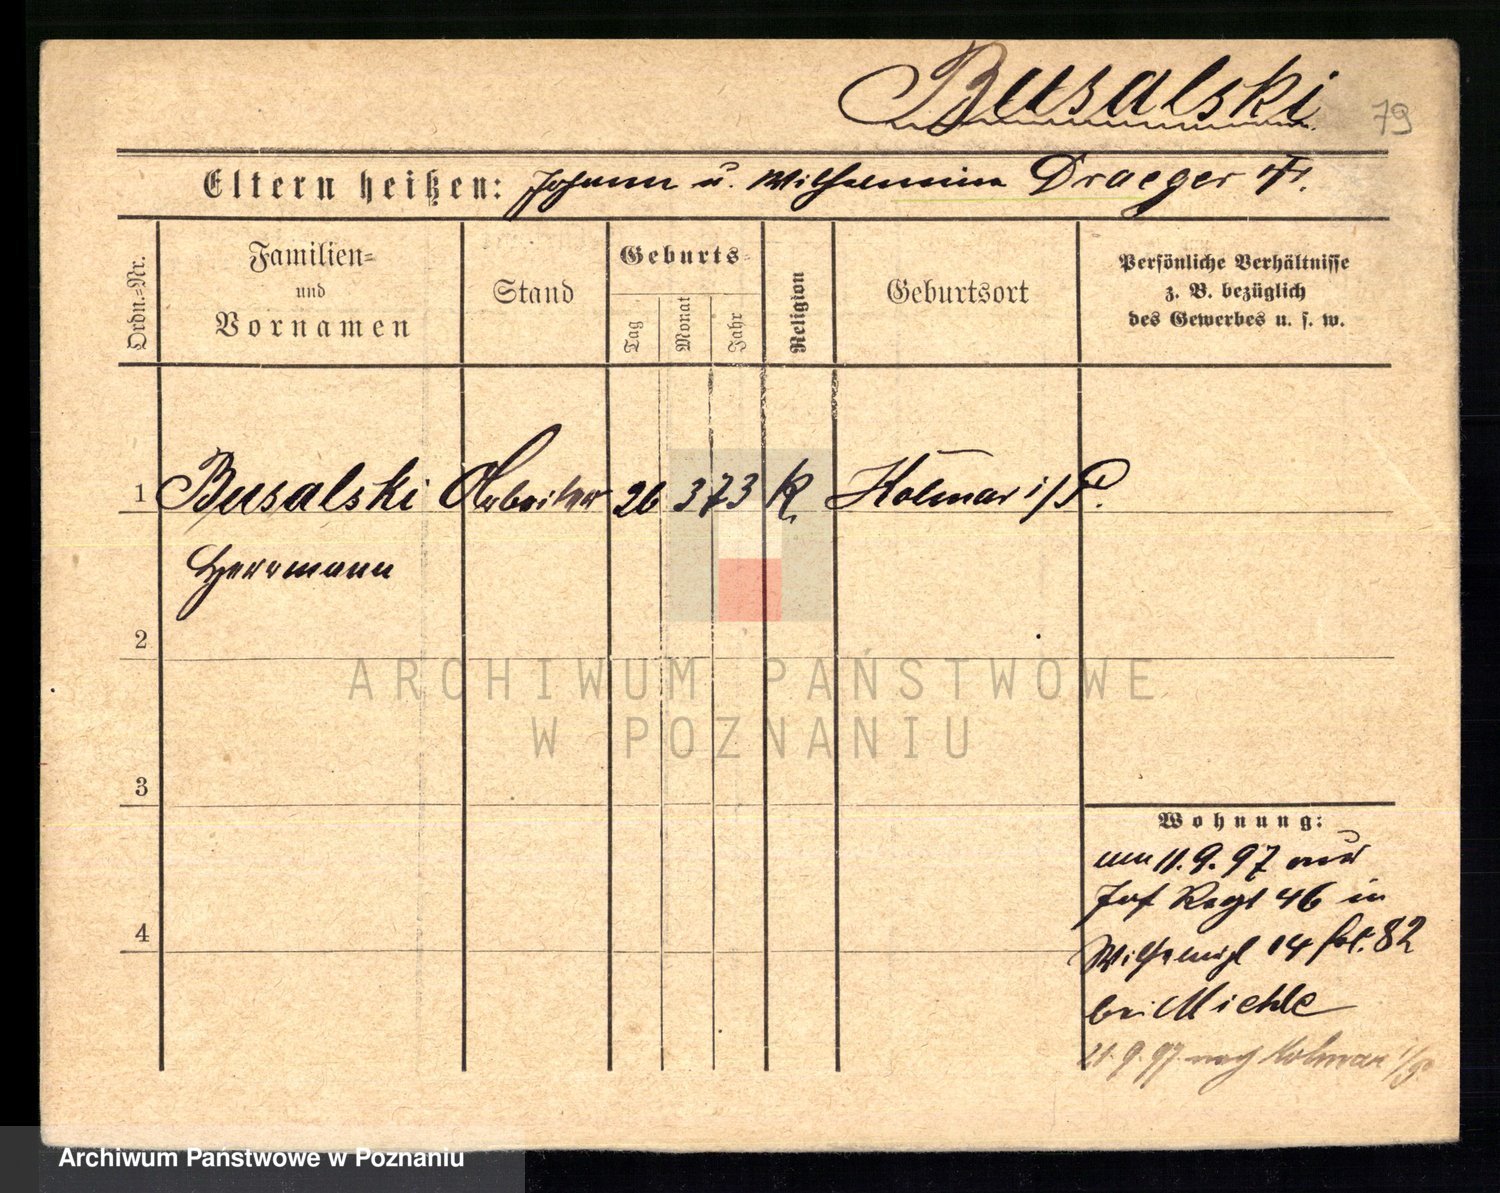 Busalski
79
Eltern heißen: Johann u. Wilhelmine Draeger
Ordn.-Nr.
Familien-
und
Vornamen
Stand
Geburts-
Tag
Monat
Jahr
Religion
Geburtsort
Persönliche Verhältnisse
z. B. bezüglich
des Gewerbes u. s. w.
1 Busalski Arbeiter 26 3 73 K. Kolmar i/P.
Herrmann
2
ARCHIWUM PAŃSTWOWE
W POZNANIU
3
Wohnung:
am 11.9.97 aus
Inf Regt 46 in
14 fol. 82
4
bei Miehle
21.9.97 nach Kolmar i/P.
Archiwum Państwowe w Poznaniu